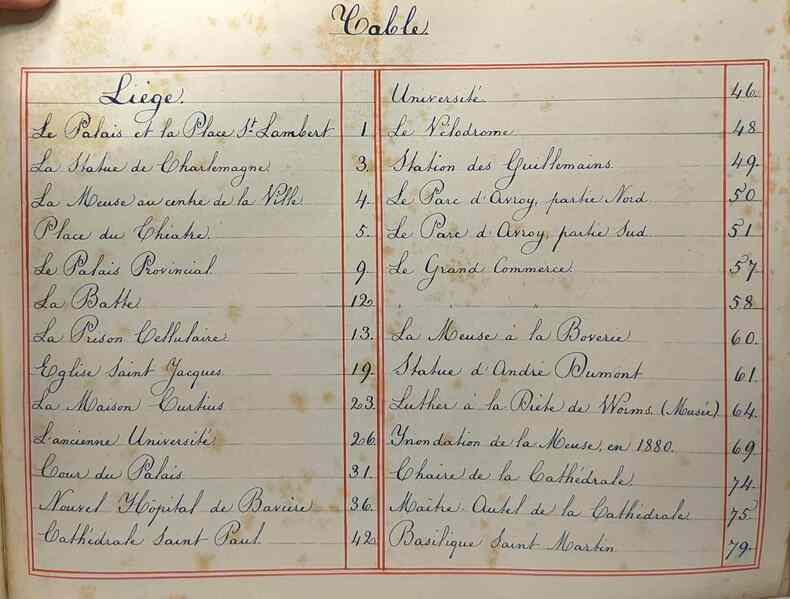 Table
Liége.
Le Palais et la Place St. Lambert 1.
La Statue de Charlemagne. 3.
La Meuse au centre de la Ville. 4.
Place du Théatre. 5.
Le Palais Provincial. 9.
La Batte 12.
La Prison Cellulaire 13.
Eglise Saint Jacques 19.
La Maison Curtius 23.
L'ancienne Université 26.
Cour du Palais 31.
Nouvel Hôpital de Bavière 36.
Cathédrale Saint Paul. 42.
Université 46.
Le Vélodrome 48
Station des Guillemains. 49.
Le Parc d'Avroy, partie Nord 50
Le Parc d'Avroy, partie Sud 51
Le Grand Commerce. 57
" " 58
La Meuse à la Boverie 60.
Statue d'André Dumont 61.
Luther à la Diète de Worms. (Musée) 64.
Inondation de la Meuse, en 1880. 69
Chaire de la Cathédrale 74.
Maître Autel de la Cathédrale 75.
Basilique Saint Martin 79.